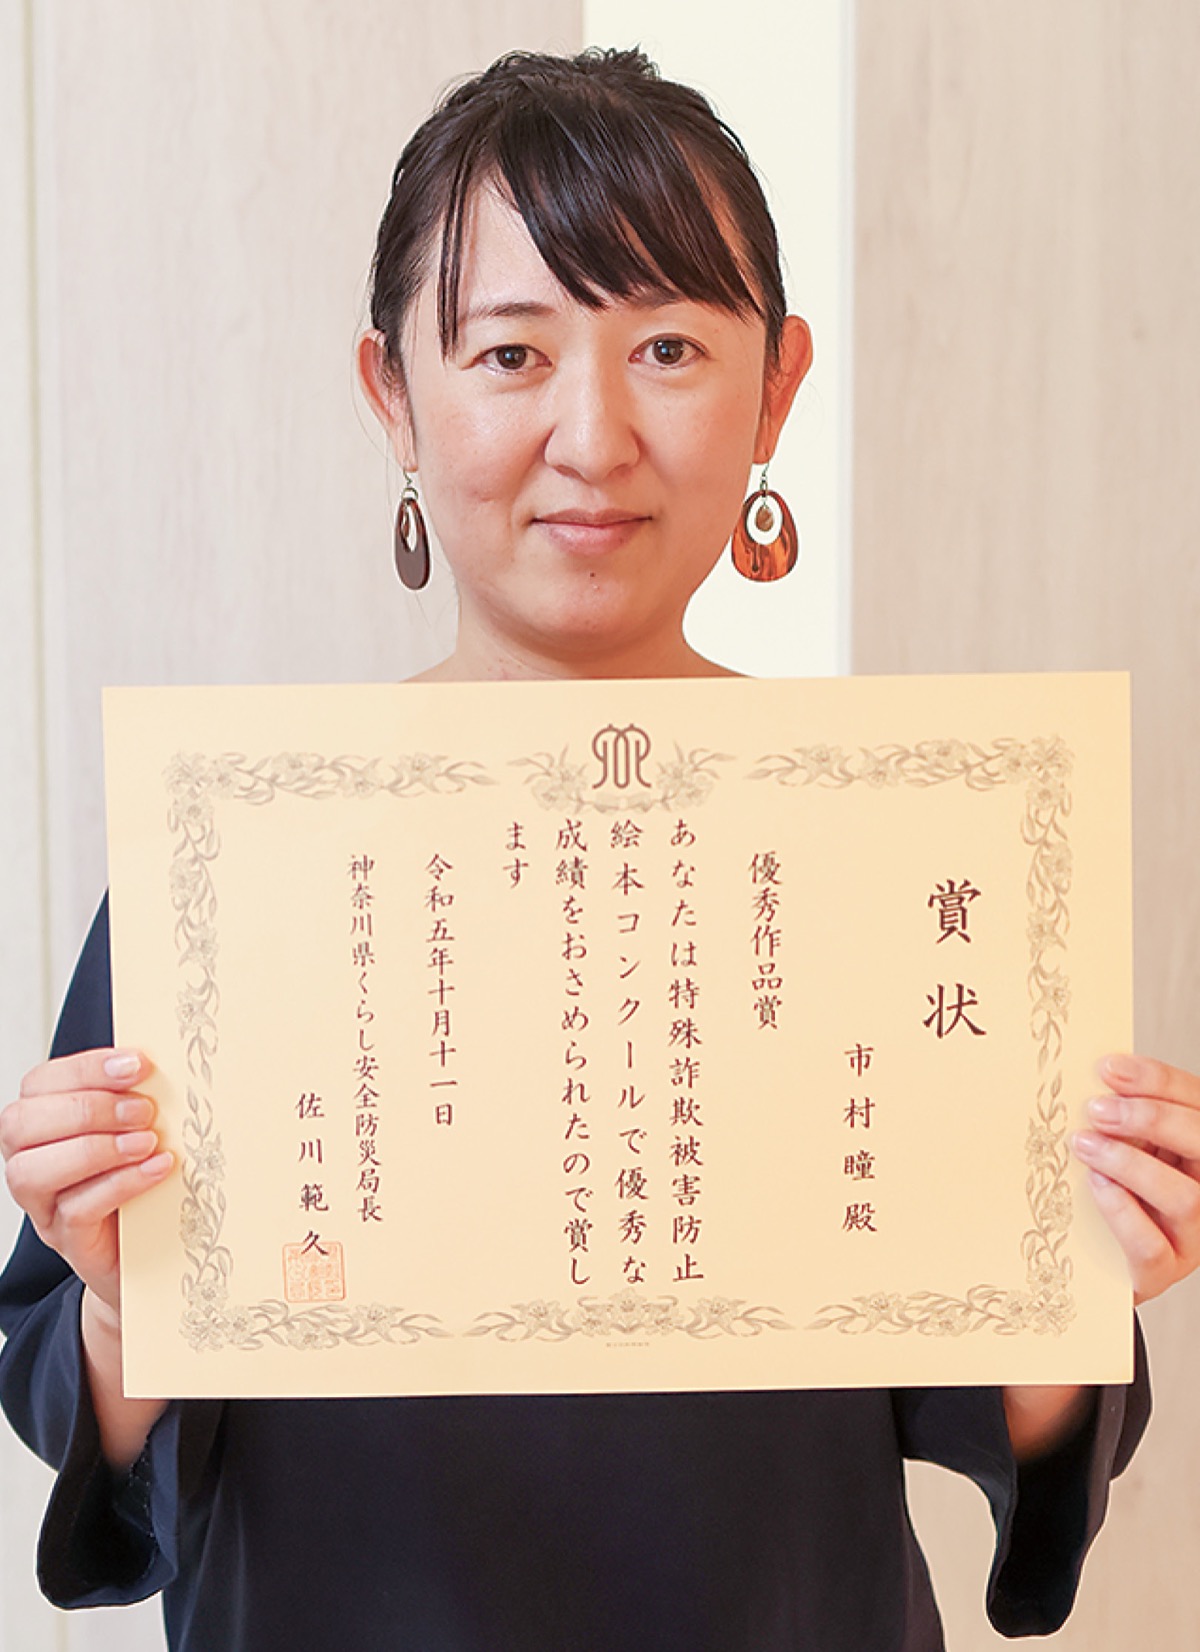 賞状
市村瞳殿
優秀作品賞
あなたは特殊詐欺被害防止
絵本コンクールで優秀な
成績をおさめられたので賞し
ます
令和五年十月十一日
神奈川県くらし安全防災局長
佐川範久